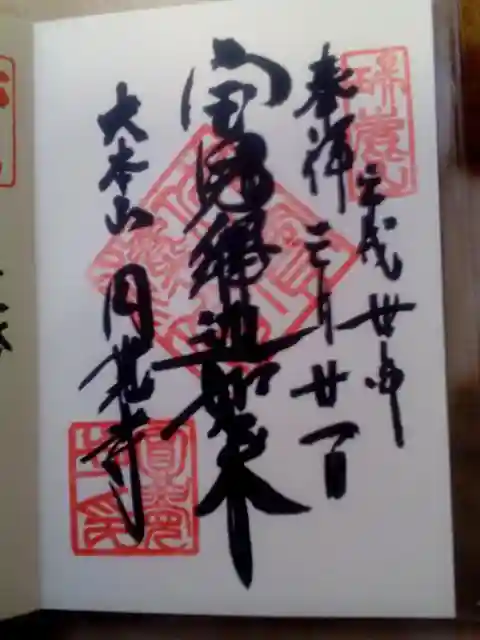 瑞鹿山
平成卅年
奉拝 三月廿一日
宝冠釈迦如来
大本山 円覚寺